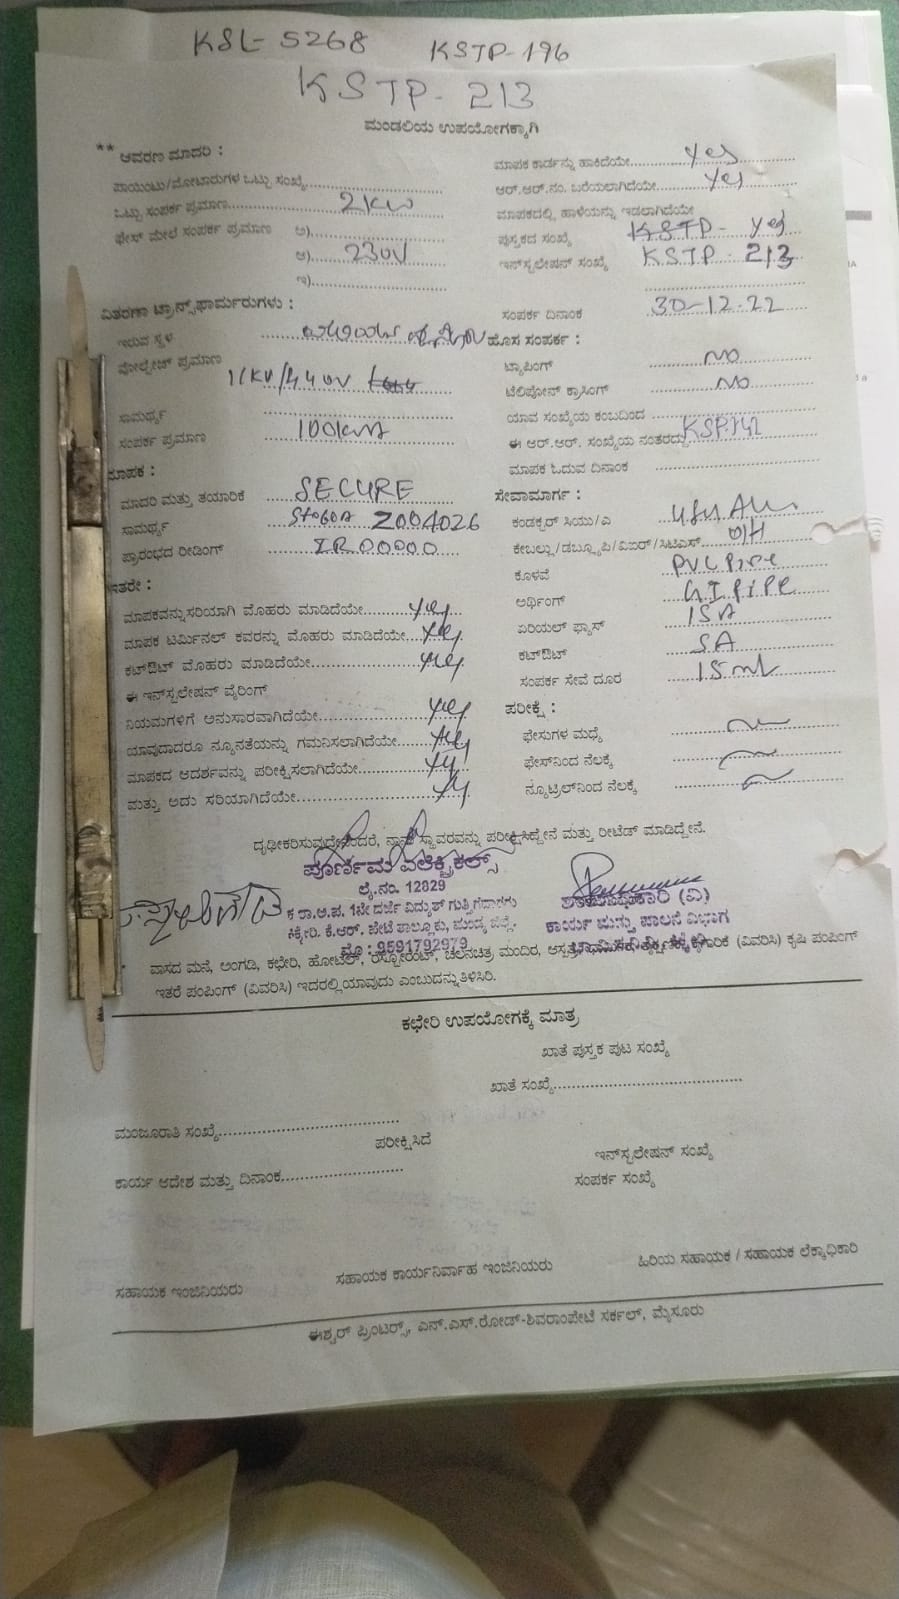 KSL-5268 KSTP-196
KSTP-213
ಮಂಡಲಿಯ ಉಪಯೋಗಕ್ಕಾಗಿ
** ಆವರಣ ಮಾದರಿ :
ಪಾಯಿಂಟು/ಮೋಟಾರುಗಳ ಒಟ್ಟು ಸಂಖ್ಯೆ
ಒಟ್ಟು ಸಂಪರ್ಕ ಪ್ರಮಾಣ 2KW
ಫೇಸ್ ಮೇಲೆ ಸಂಪರ್ಕ ಪ್ರಮಾಣ ಅ)
ಆ) 230V
ಇ)
ವಿತರಣಾ ಟ್ರಾನ್ಸ್‌ಫಾರ್ಮರುಗಳು :
ಇರುವ ಸ್ಥಳ
ವೋಲ್ಟೇಜ್ ಪ್ರಮಾಣ
11KV/440V
ಸಾಮರ್ಥ್ಯ
ಸಂಪರ್ಕ ಪ್ರಮಾಣ 100KVA
ಮಾಪಕ :
ಮಾದರಿ ಮತ್ತು ತಯಾರಿಕೆ SECURE
ಸಾಮರ್ಥ್ಯ 2004026
ಪ್ರಾರಂಭದ ರೀಡಿಂಗ್ IR 00000
ಇತರೇ :
ಮಾಪಕವನ್ನು ಸರಿಯಾಗಿ ಮೊಹರು ಮಾಡಿದೆಯೇ yes
ಮಾಪಕ ಟರ್ಮಿನಲ್ ಕವರನ್ನು ಮೊಹರು ಮಾಡಿದೆಯೇ yes
ಕಟ್‌ಔಟ್ ಮೊಹರು ಮಾಡಿದೆಯೇ yes
ಈ ಇನ್‌ಸ್ಟಲೇಷನ್ ವೈರಿಂಗ್
ನಿಯಮಗಳಿಗೆ ಅನುಸಾರವಾಗಿದೆಯೇ yes
ಯಾವುದಾದರೂ ನ್ಯೂನತೆಯನ್ನು ಗಮನಿಸಲಾಗಿದೆಯೇ yes
ಮಾಪಕದ ಆದರ್ಶವನ್ನು ಪರೀಕ್ಷಿಸಲಾಗಿದೆಯೇ
ಮತ್ತು ಅದು ಸರಿಯಾಗಿದೆಯೇ
ಮಾಪಕ ಕಾರ್ಡನ್ನು ಹಾಕಿದೆಯೇ yes
ಆರ್.ಆರ್.ನಂ. ಬರೆಯಲಾಗಿದೆಯೇ yes
ಮಾಪಕದಲ್ಲಿ ಹಾಳೆಯನ್ನು ಇಡಲಾಗಿದೆಯೇ
ಪುಸ್ತಕದ ಸಂಖ್ಯೆ KSTP - yes
ಇನ್‌ಸ್ಟಲೇಷನ್ ಸಂಖ್ಯೆ KSTP - 213
ಸಂಪರ್ಕ ದಿನಾಂಕ 30-12-22
ಹೊಸ ಸಂಪರ್ಕ :
ಟ್ಯಾಪಿಂಗ್ NO
ಟೆಲಿಪೋನ್ ಕ್ರಾಸಿಂಗ್ NO
ಯಾವ ಸಂಖ್ಯೆಯ ಕಂಬದಿಂದ
ಈ ಆರ್.ಆರ್. ಸಂಖ್ಯೆಯ ನಂತರದ್ದು
ಮಾಪಕ ಓದುವ ದಿನಾಂಕ
ಸೇವಾಮಾರ್ಗ :
ಕಂಡಕ್ಟರ್ ಸಿಯು/ಎ
ಕೇಬಲ್ಲು/ಡಬ್ಲ್ಯೂಪಿ/ವಿಐರ್/ಸಿಟಿಎಸ್ O/H
ಕೊಳವೆ PVC Pipe
ಅರ್ಥಿಂಗ್ G.I PIPE
ಏರಿಯಲ್ ಫ್ಯೂಸ್ 15A
ಕಟ್‌ಔಟ್ 5A
ಸಂಪರ್ಕ ಸೇವೆ ದೂರ
ಪರೀಕ್ಷೆ :
ಫೇಸುಗಳ ಮಧ್ಯೆ
ಫೇಸ್‌ನಿಂದ ನೆಲಕ್ಕೆ
ನ್ಯೂಟ್ರಿಲ್‌ನಿಂದ ನೆಲಕ್ಕೆ
ದೃಢೀಕರಿಸುವುದೇನೆಂದರೆ, ನಾನು ಸ್ಥಾವರವನ್ನು ಪರೀಕ್ಷಿಸಿದ್ದೇನೆ ಮತ್ತು ರೀಟೆಡ್ ಮಾಡಿದ್ದೇನೆ.
ಪೂರ್ಣಿಮ ಎಲೆಕ್ಟ್ರಿಕಲ್ಸ್
ಲೈ.ನಂ. 12829
ಕ.ರಾ.ಅ.ಪ. 1ನೇ ದರ್ಜೆ ವಿದ್ಯುತ್ ಗುತ್ತಿಗೆದಾರರು
ಕಿಕ್ಕೇರಿ. ಕೆ.ಆರ್. ಪೇಟೆ ತಾಲ್ಲೂಕು, ಮಂಡ್ಯ ಜಿಲ್ಲೆ.
ಮೊ : 9591792979
ಶಾಖಾಧಿಕಾರಿ (ವಿ)
ಕಾರ್ಯ ಮತ್ತು ಪಾಲನೆ ವಿಭಾಗ
ವಾಸದ ಮನೆ, ಅಂಗಡಿ, ಕಛೇರಿ, ಹೋಟೆಲ್, ರೆಸ್ಟೋರೆಂಟ್, ಚಲನಚಿತ್ರ ಮಂದಿರ, (ವಿವರಿಸಿ) ಕೃಷಿ ಪಂಪಿಂಗ್
ಇತರೆ ಪಂಪಿಂಗ್ (ವಿವರಿಸಿ) ಇದರಲ್ಲಿ ಯಾವುದು ಎಂಬುದನ್ನು ತಿಳಿಸಿರಿ.
ಕಛೇರಿ ಉಪಯೋಗಕ್ಕೆ ಮಾತ್ರ
ಖಾತೆ ಪುಸ್ತಕ ಪುಟ ಸಂಖ್ಯೆ
ಖಾತೆ ಸಂಖ್ಯೆ
ಮಂಜೂರಾತಿ ಸಂಖ್ಯೆ
ಪರೀಕ್ಷಿಸಿದೆ
ಇನ್‌ಸ್ಟಲೇಷನ್ ಸಂಖ್ಯೆ
ಕಾರ್ಯ ಆದೇಶ ಮತ್ತು ದಿನಾಂಕ
ಸಂಪರ್ಕ ಸಂಖ್ಯೆ
ಸಹಾಯಕ ಇಂಜಿನಿಯರು ಸಹಾಯಕ ಕಾರ್ಯನಿರ್ವಾಹ ಇಂಜಿನಿಯರು ಹಿರಿಯ ಸಹಾಯಕ / ಸಹಾಯಕ ಲೆಕ್ಕಾಧಿಕಾರಿ
ಈಶ್ವರ್ ಪ್ರಿಂಟರ‍್ಸ್, ಎನ್.ಎಸ್.ರೋಡ್-ಶಿವರಾಂಪೇಟೆ ಸರ್ಕಲ್, ಮೈಸೂರು